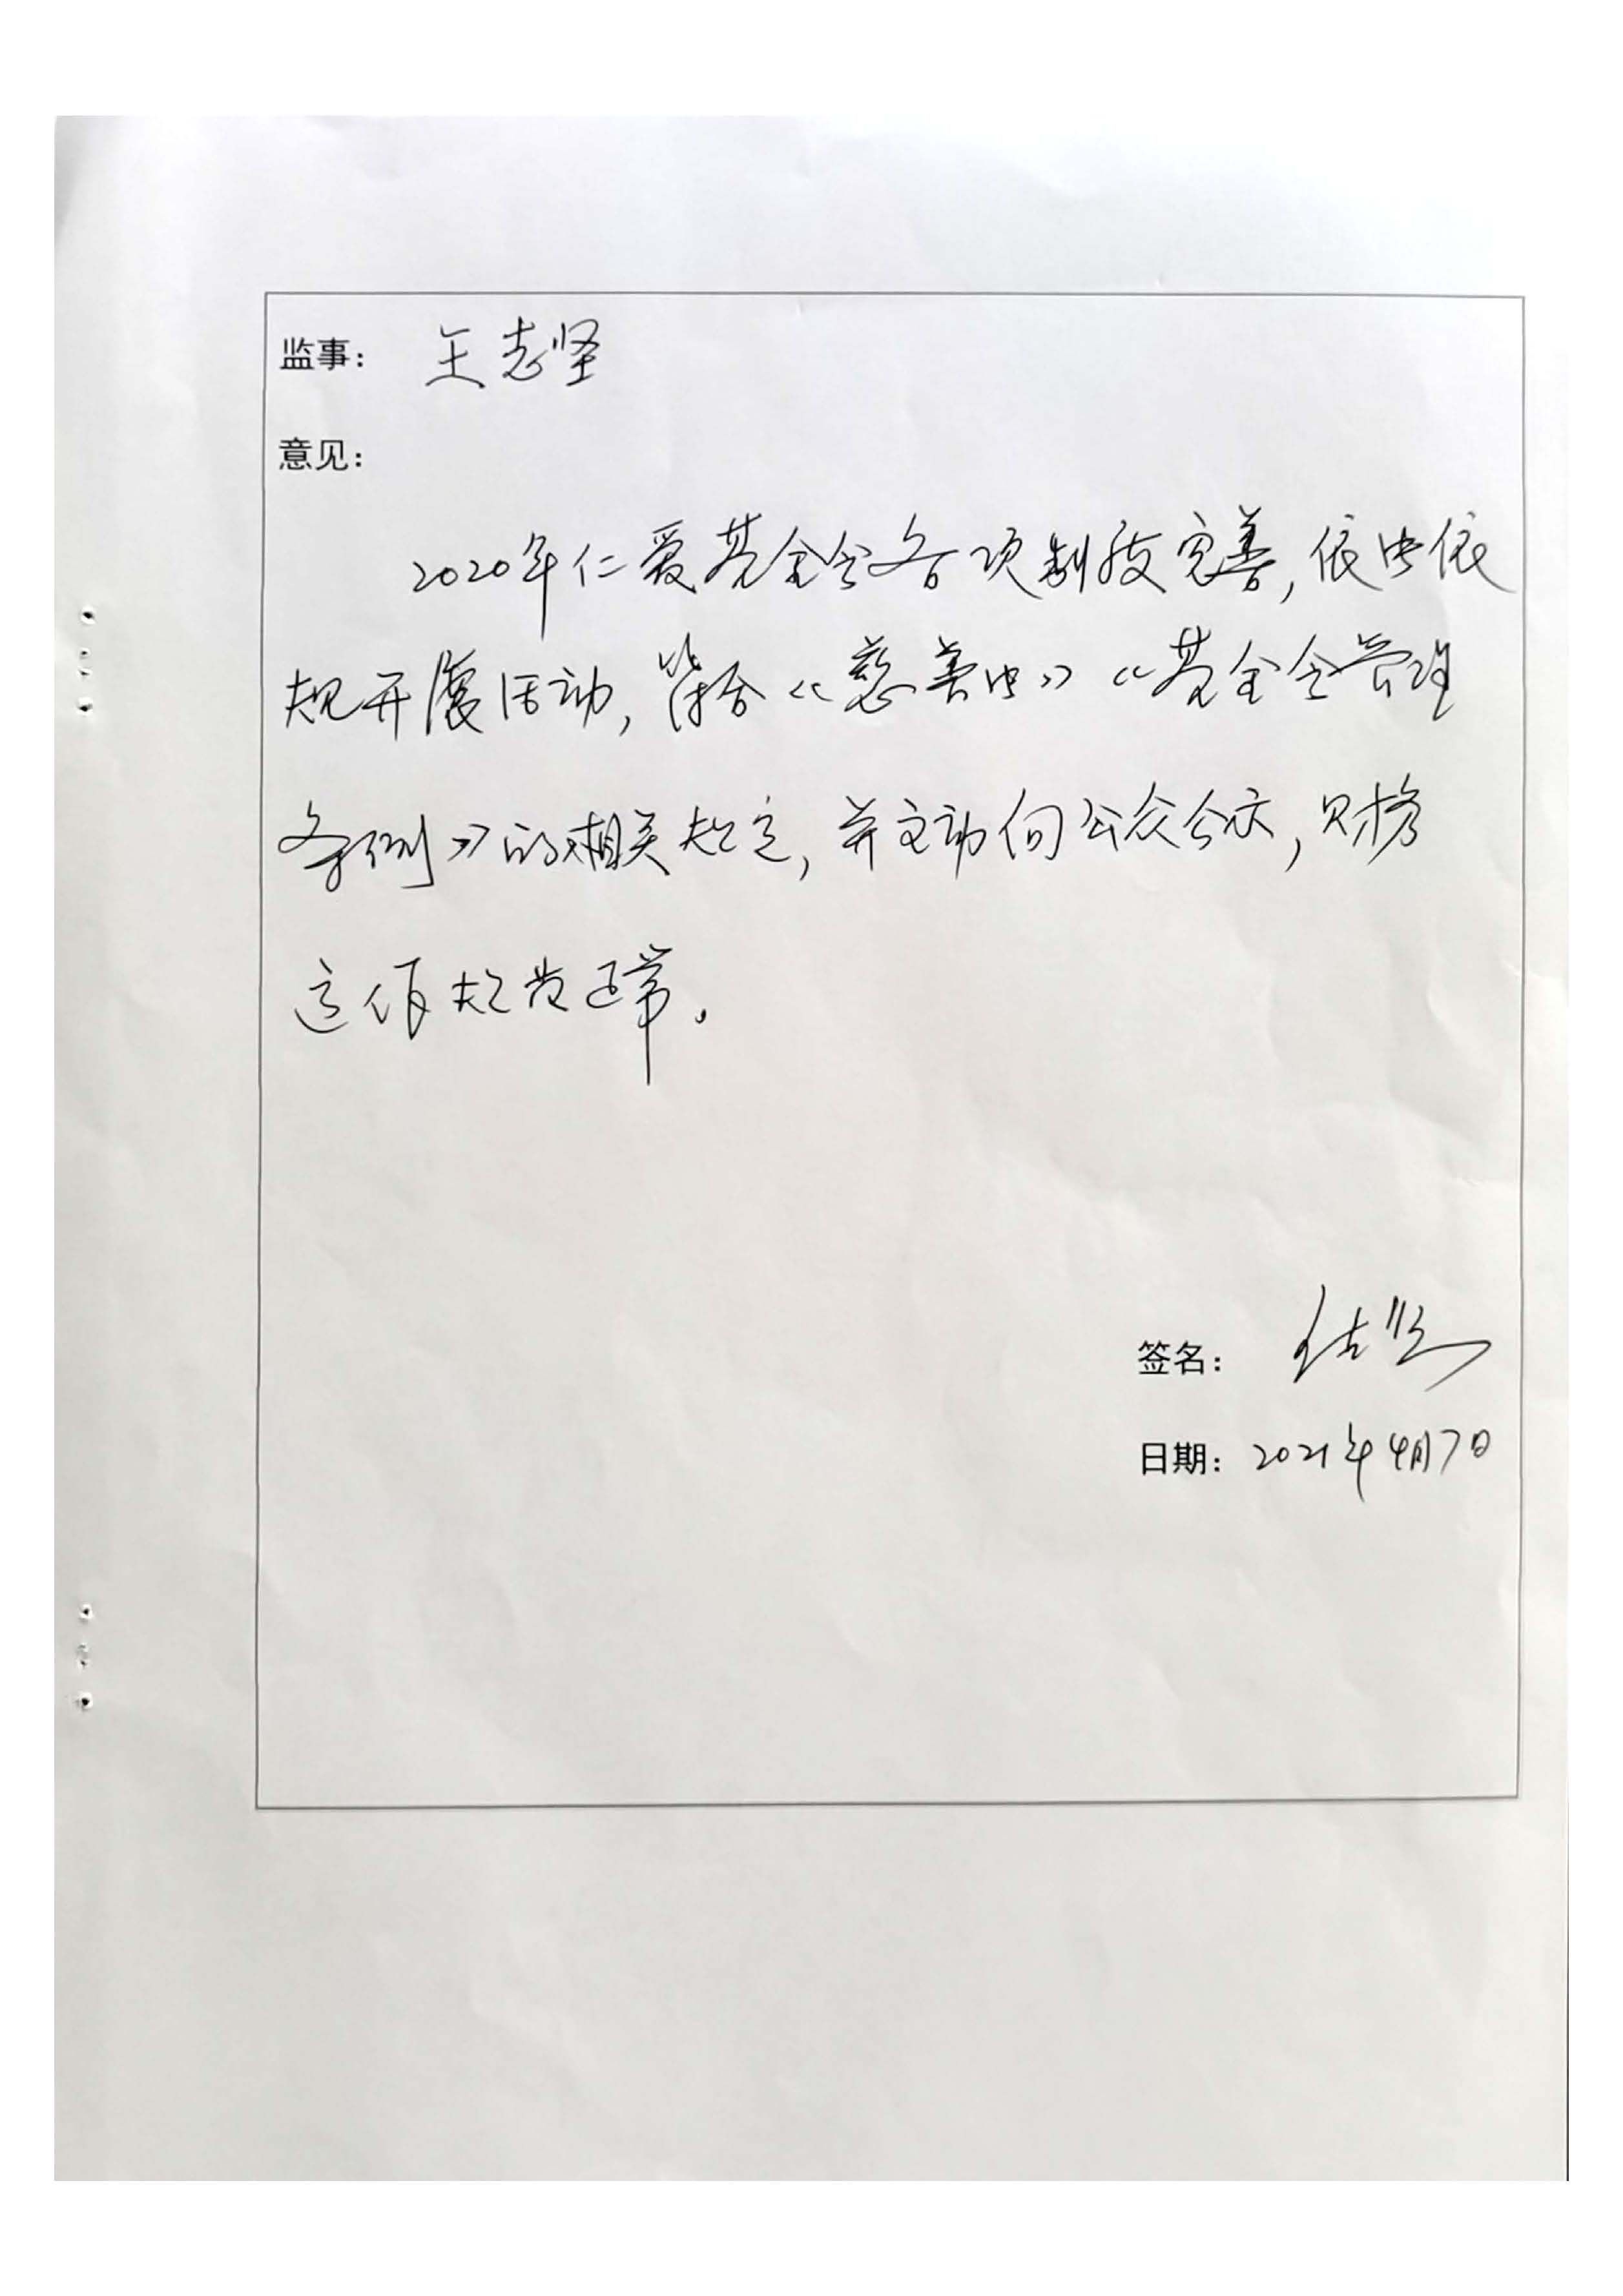 监事： 王志坚
意见：
2020年仁爱基金会各项制度完善，依法依
规开展活动，符合《慈善法》《基金会管理
条例》的相关规定，并主动向公众公示，财务
运作规范正常。
签名：
日期：2021年4月7日